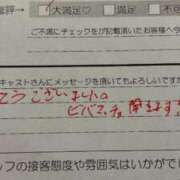 評→ ○大満足♡ □満足 □不
ご不満にチェックをが記載頂いたお客様へ今
キャストさんにメッセージを頂いてもよろしいですか
とうございました。
ッフの接客態度や雰囲気はいかがでし